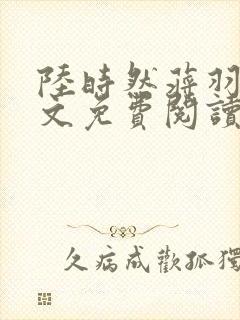 陸時然蔣羽
文免費閱讀
久病成歡孤獨